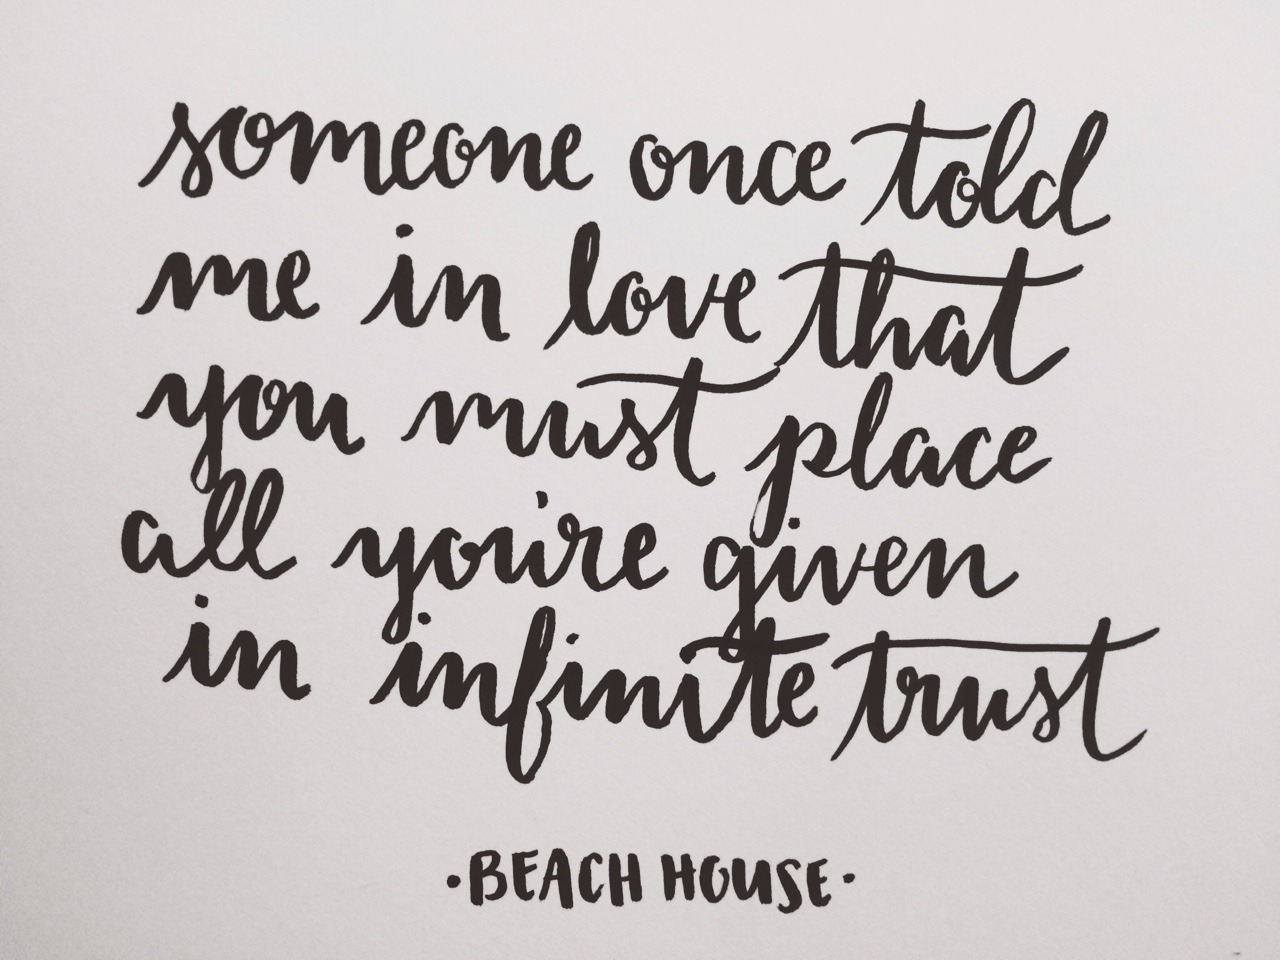 someone once told
me in love that
you must place
all you're given
in infinite trust
·BEACH HOUSE·